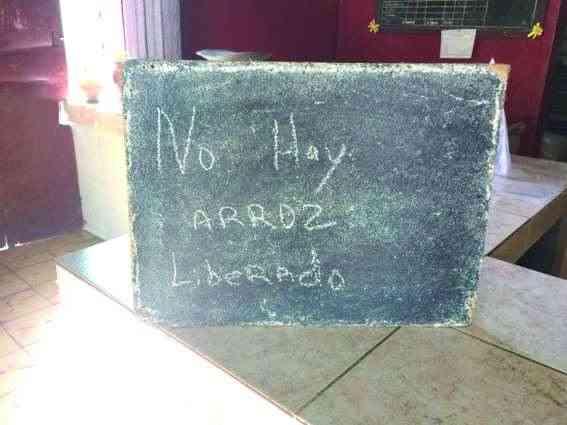 No Hay
ARROZ
LibeRAdo